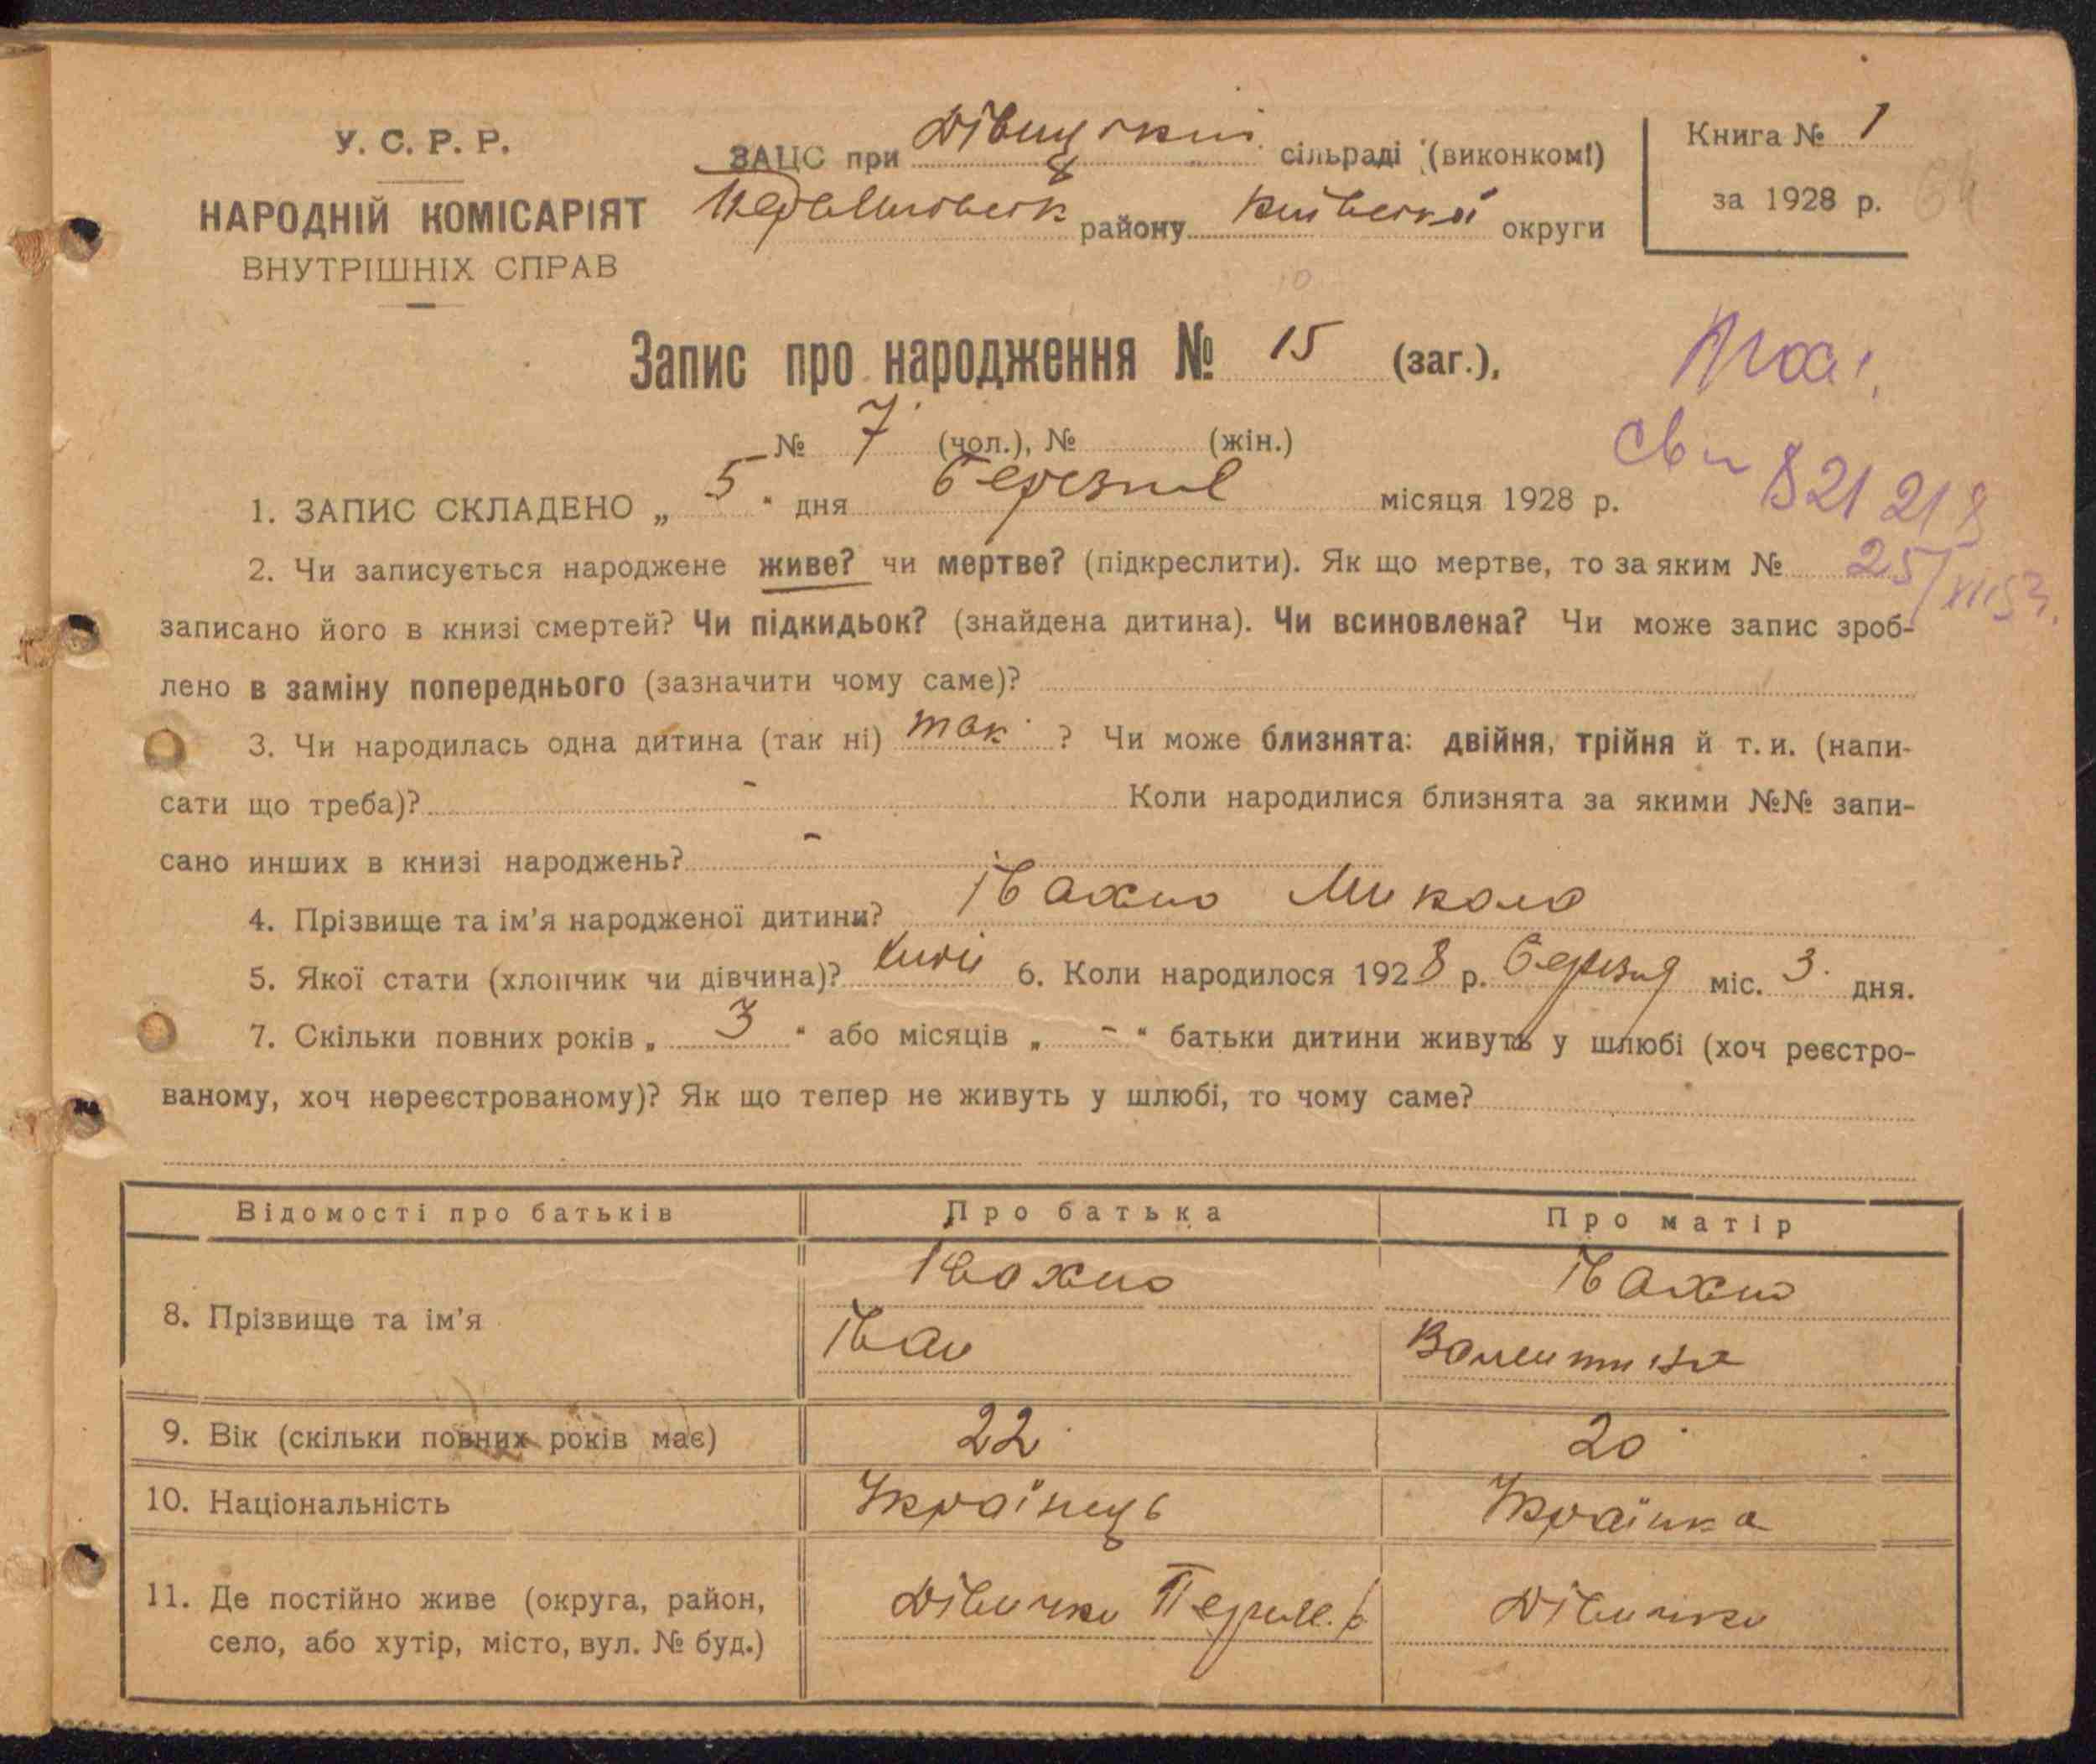 У. С. Р. Р.
НАРОДНІЙ КОМІСАРІЯТ
ВНУТРІШНІХ СПРАВ
ЗАЦС при сільраді (виконкомі)
району Київської округи
Книга № 1
за 1928 р.
Запис про народження № 15 (заг.),
№ 7 (чол.), № (жін.)
1. ЗАПИС СКЛАДЕНО „ 5 “ дня березня місяця 1928 р.
821218
2. Чи записується народжене живе? чи мертве? (підкреслити). Як що мертве, то за яким №
записано його в книзі смертей? Чи підкидьок? (знайдена дитина). Чи всиновлена? Чи може запис зроб-
лено в заміну попереднього (зазначити чому саме)?
3. Чи народилась одна дитина (так ні) так ? Чи може близнята: двійня, трійня й т. и. (напи-
сати що треба)? - Коли народилися близнята за якими №№ запи-
сано инших в книзі народжень? -
4. Прізвище та ім’я народженої дитини? Івахно Микола
5. Якої стати (хлопчик чи дівчина)? 6. Коли народилося 1928 р. березня міс. 3 дня.
7. Скільки повних років „ 3 “ або місяців „ - “ батьки дитини живуть у шлюбі (хоч реєстро-
ваному, хоч нереєстрованому)? Як що тепер не живуть у шлюбі, то чому саме?
Відомості про батьків Про батька Про матір
8. Прізвище та ім’я Івахно Івахно
Іван Валентина
9. Вік (скільки повних років має) 22 20
10. Національність Українець Українка
11. Де постійно живе (округа, район, Дівички Переял. р Дівички
село, або хутір, місто, вул. № буд.)